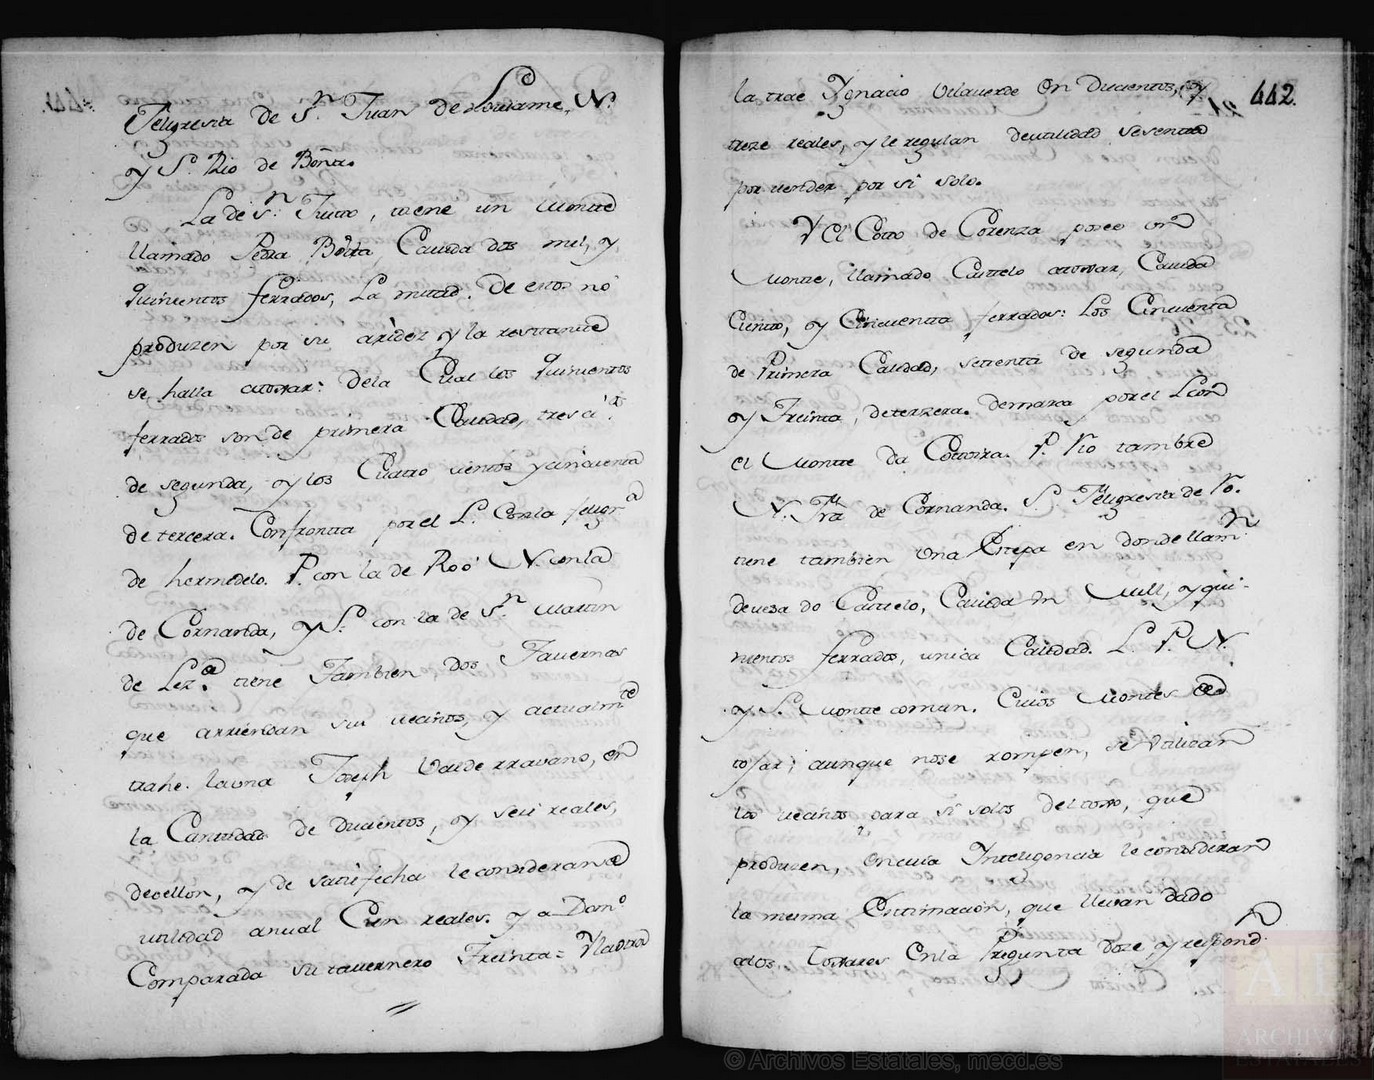 Feligresia de Sn. Juan de Lousame, N.
y S. Rio de Bont.
La de Sn. Justo, tiene un Monte
llamado Pedra Bolta, Cavida dos mil, y
quinientos ferrados, La mitad. De estos no
produzen por su aridez y la restante
se halla atoxar: dela Cual los quinientos
ferrados son de primera Calidad, tresci.tos
de segunda, y los Cuatro cientos y cinquenta
de tercera. Confronta por el L. Con la feligr.a
de hermedelo. P. con la de Roo N. con la
de Cornanda, y S. con la de Sn. Martin
de Lez.a tiene Tambien Dos Tavernas
que arriendan sus vecinos, y actualm.te
trahe. la una Joseph Valderravano, en
la Cantidad de Ducientos, y seis reales,
devellon, y de satisfecha le consideran de
utilidad anual Cien reales. y a Dom.o
Comparada su tavernero Treinta = Y la otra
442.
la trae Ygnacio Vilaverde en Ducientos, y
treze reales, y le regulan de utilidad sesenta
por vender por si solo.
Y el Coto de Corenza posee un
Monte, llamado Castelo atoxar, Cavida
Ciento, y Cincuenta ferrados: Los Cincuenta
de Primera Calidad, setenta de segunda
y Treinta, deterzera. demarca por el L. con
el Monte da Cotorra. P. Rio tambre
N. Fra. de Cornanda. S. Feligresia de Ro.
tiene tambien Una Estepa en donde llam.n
devesa do Castelo, Cavida en Mill, y qui-
nientos ferrados, unica Calidad. L. P. N.
y S. Monte comun. Cuios Montes de
tojar; aunque nose rompen, se utilizan
los vecinos para si solos del toxo, que
produzen, en cuia Inteligencia le consideran
la misma Estimacion, que llevan dado
alos Toxares En la Pregunta Doze y respond.n